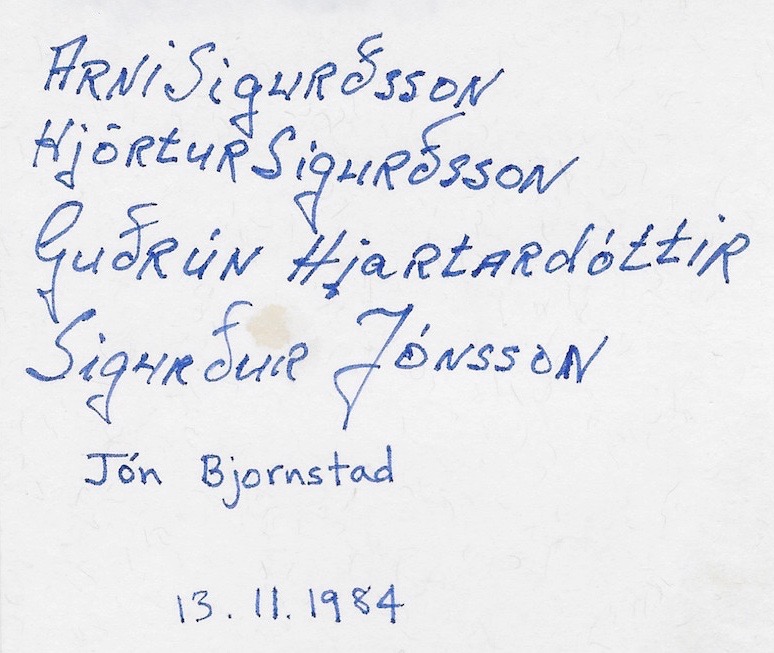 Arni Sigurðsson
Hjörtur Sigurðsson
Guðrún Hjartardóttir
Sigurður Jónsson
Jón Bjornstad
13.11.1984